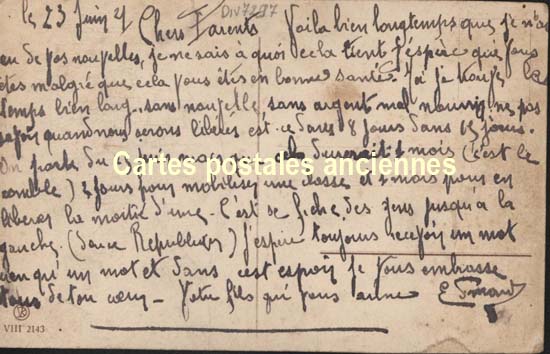 le 23 Juin 21 DIV7297
Chers Parents Voilà bien longtemps que je n'ai
eu de vos nouvelles, je ne sais à quoi cela tient j'espère que vous
êtes malgré que cela vous êtes en bonne santé. Moi je trouve le
temps bien long, sans nouvelle, sans argent mal nourri, ne pas
savoir quand nous serons libérés est-ce dans 8 jours dans 15 jours.
On parle du mois (c'est le
comble) 3 jours pour mobiliser une classe et 2 mois pour en
libérer la moitié d'une. C'est se fiche des gens jusqu'à la
gauche. (Sale République) j'espère toujours recevoir un mot
rien qu'un mot et dans cet espoir je vous embrasse
tous de tout cœur - Votre fils qui vous aime
Cartes postales anciennes
VIII 2143